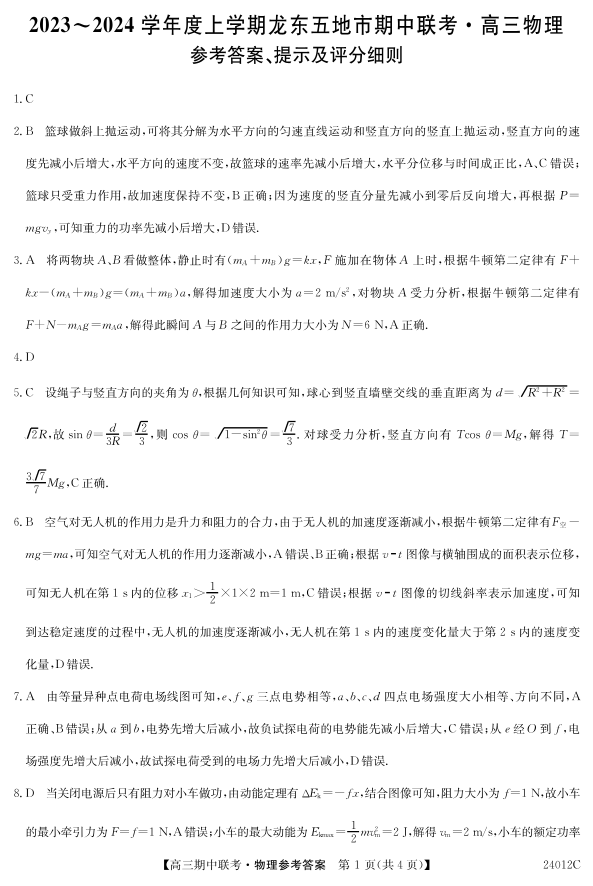 2023～2024 学年度上学期龙东五地市期中联考·高三物理
参考答案、提示及评分细则
1. C
2. B 篮球做斜上抛运动,可将其分解为水平方向的匀速直线运动和竖直方向的竖直上抛运动,竖直方向的速
度先减小后增大,水平方向的速度不变,故篮球的速率先减小后增大,水平分位移与时间成正比,A、C 错误;
篮球只受重力作用,故加速度保持不变,B 正确;因为速度的竖直分量先减小到零后反向增大,再根据 P=
mgvy,可知重力的功率先减小后增大,D 错误.
3. A 将两物块 A、B 看做整体,静止时有(mA+mB)g=kx,F 施加在物体 A 上时,根据牛顿第二定律有 F+
kx−(mA+mB)g=(mA+mB)a,解得加速度大小为 a=2 m/s²,对物块 A 受力分析,根据牛顿第二定律有
F+N−mAg=mAa,解得此瞬间 A 与 B 之间的作用力大小为 N=6 N,A 正确.
4. D
5. C 设绳子与竖直方向的夹角为 θ,根据几何知识可知,球心到竖直墙壁交线的垂直距离为 d=√(R²+R²)=
√2R,故 sin θ=d/3R=√2/3,则 cos θ=√(1−sin²θ)=√7/3. 对球受力分析,竖直方向有 Tcos θ=Mg,解得 T=
3√7/7 Mg,C 正确.
6. B 空气对无人机的作用力是升力和阻力的合力,由于无人机的加速度逐渐减小,根据牛顿第二定律有F空−
mg=ma,可知空气对无人机的作用力逐渐减小,A 错误、B 正确;根据 v-t 图像与横轴围成的面积表示位移,
可知无人机在第 1 s 内的位移 x₁>1/2×1×2 m=1 m,C 错误;根据 v-t 图像的切线斜率表示加速度,可知
到达稳定速度的过程中,无人机的加速度逐渐减小,无人机在第 1 s 内的速度变化量大于第 2 s 内的速度变
化量,D 错误.
7. A 由等量异种点电荷电场线图可知,e、f、g 三点电势相等,a、b、c、d 四点电场强度大小相等、方向不同,A
正确、B 错误;从 a 到 b,电势先增大后减小,故负试探电荷的电势能先减小后增大,C 错误;从 e 经 O 到 f,电
场强度先增大后减小,故试探电荷受到的电场力先增大后减小,D 错误.
8. D 当关闭电源后只有阻力对小车做功,由动能定理有 ΔEk=−fx,结合图像可知,阻力大小为 f=1 N,故小车
的最小牵引力为 F=f=1 N,A 错误;小车的最大动能为 Ekmax=1/2mvm²=2 J,解得 vm=2 m/s,小车的额定功率
【高三期中联考·物理参考答案 第 1 页(共 4 页)】 24012C